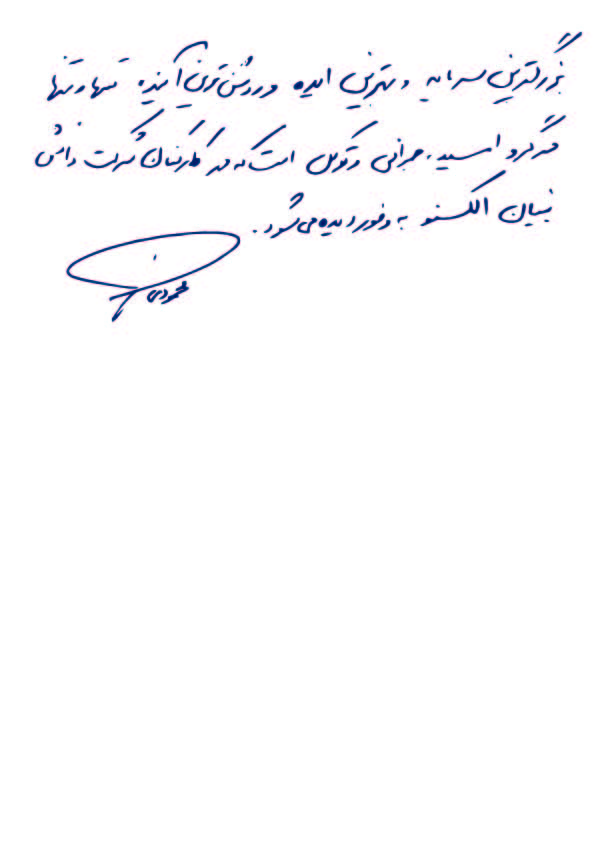 بزرگترین سرمایه و بهترین ایده و روشن‌ترین آینده تنها و تنها
در گرو امید، جوانی و توکل است که در کارکنان شرکت دانش
بنیان الکسنو به وفور دیده می‌شود.
محمودی